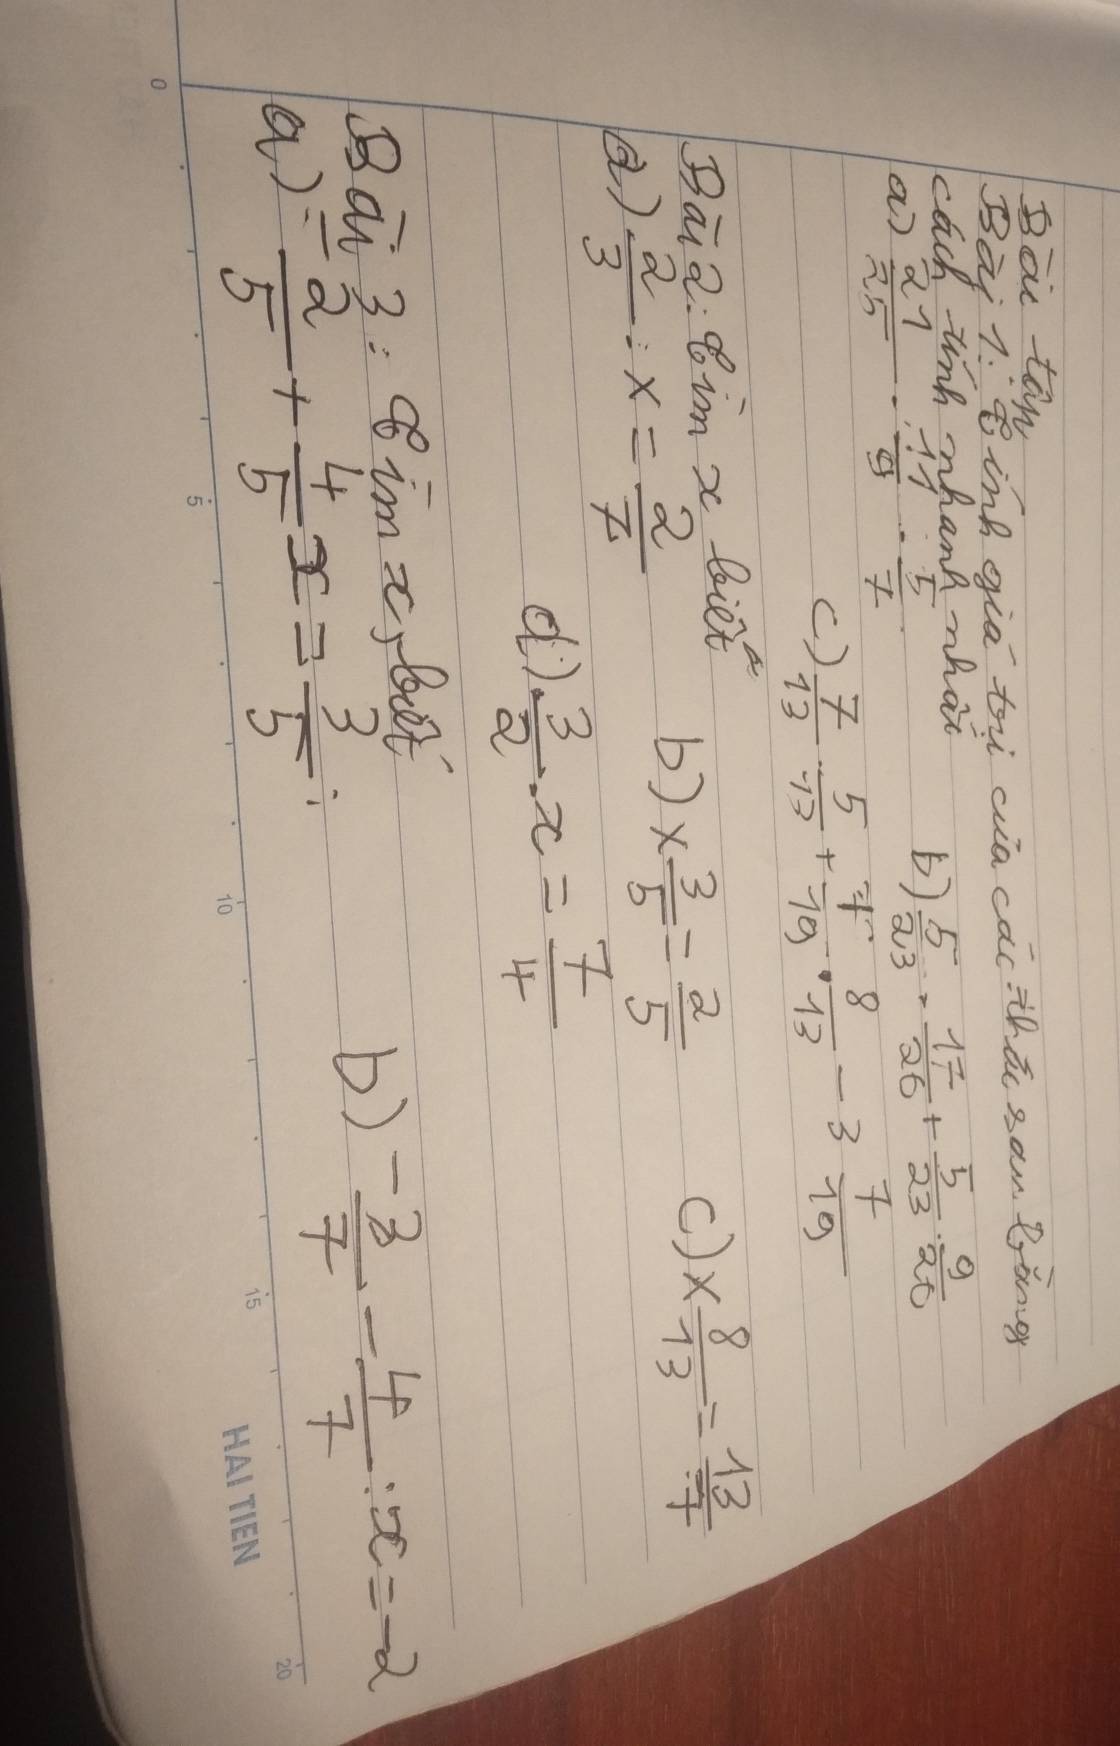 Bài tập
Bài 1: Tính giá trị của các thức sau bằng
cách tính nhanh nhất
a) 21/25 . 11/9 . 5/7 b) 5/23 . 17/26 + 5/23 . 9/26
c) 7/13 . 5/13 + 7/19 . 8/13 - 3 7/19
Bài 2: Tìm x biết
a) 2/3 : x = 2/7 b) x 3/5 = 2/5 c) x 8/13 = 13/7
d) 3/2 . x = 7/4
Bài 3: Tìm x, biết
a) -2/5 + 4/5 x = 3/5 ; b) -3/7 - 4/7 : x = -2
0 5 10 15 20
HAI TIEN